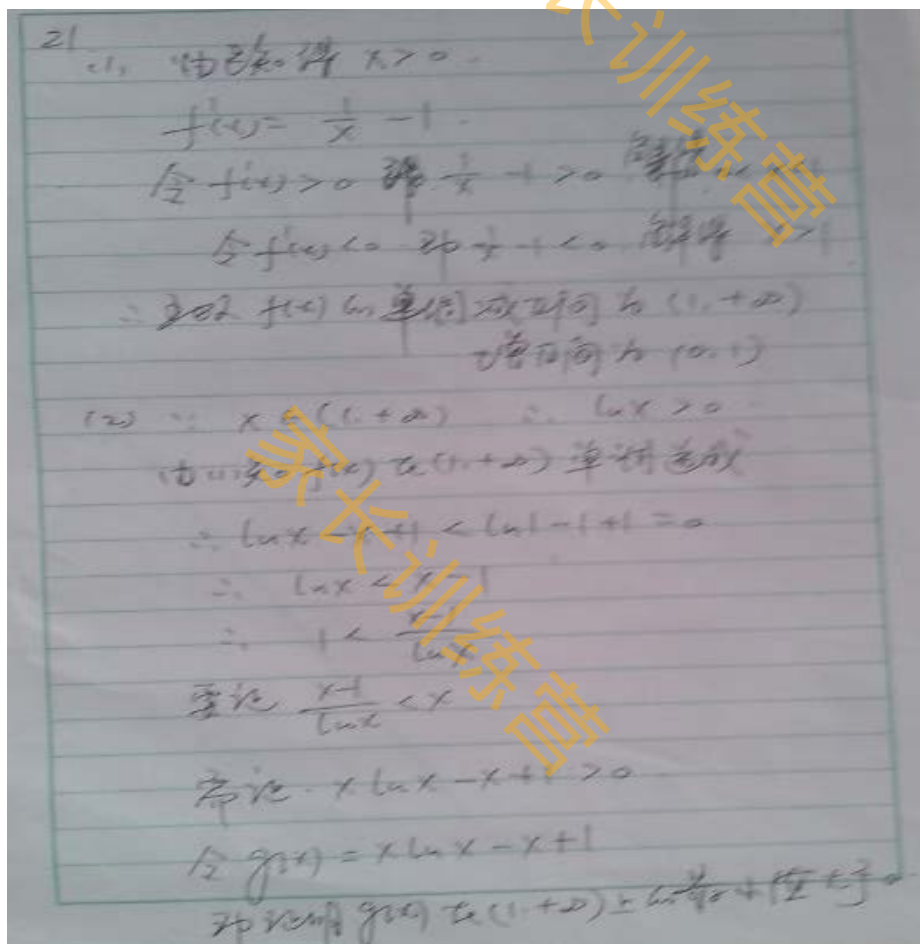 21
(1) 由已知得 x>0.
f'(x)= 1/x -1.
令 f'(x)>0 即 1/x -1>0 解得 0<x<1
令 f'(x)<0 即 1/x -1<0 解得 x>1
∴ f(x) 的单调减区间为 (1,+∞)
增区间为 (0,1)
(2) ∵ x∈(1,+∞) ∴ lnx>0.
由(1)知 f(x) 在(1,+∞) 单调递减
∴ lnx-x+1<ln1-1+1=0
∴ lnx<x-1
∴ 1< (x-1)/lnx
要证 (x-1)/lnx <x
需证 xlnx-x+1>0
令 g(x)=xlnx-x+1
即证明 g(x) 在(1,+∞)上的
家长训练营
家长训练营